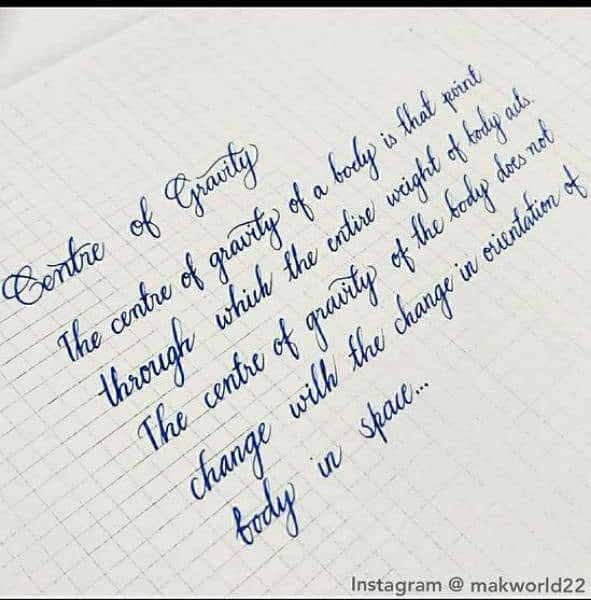 Centre of Gravity
The centre of gravity of a body is that point
through which the entire weight of body acts.
The centre of gravity of the body does not
change with the change in orientation of
body in space...
Instagram @ makworld22